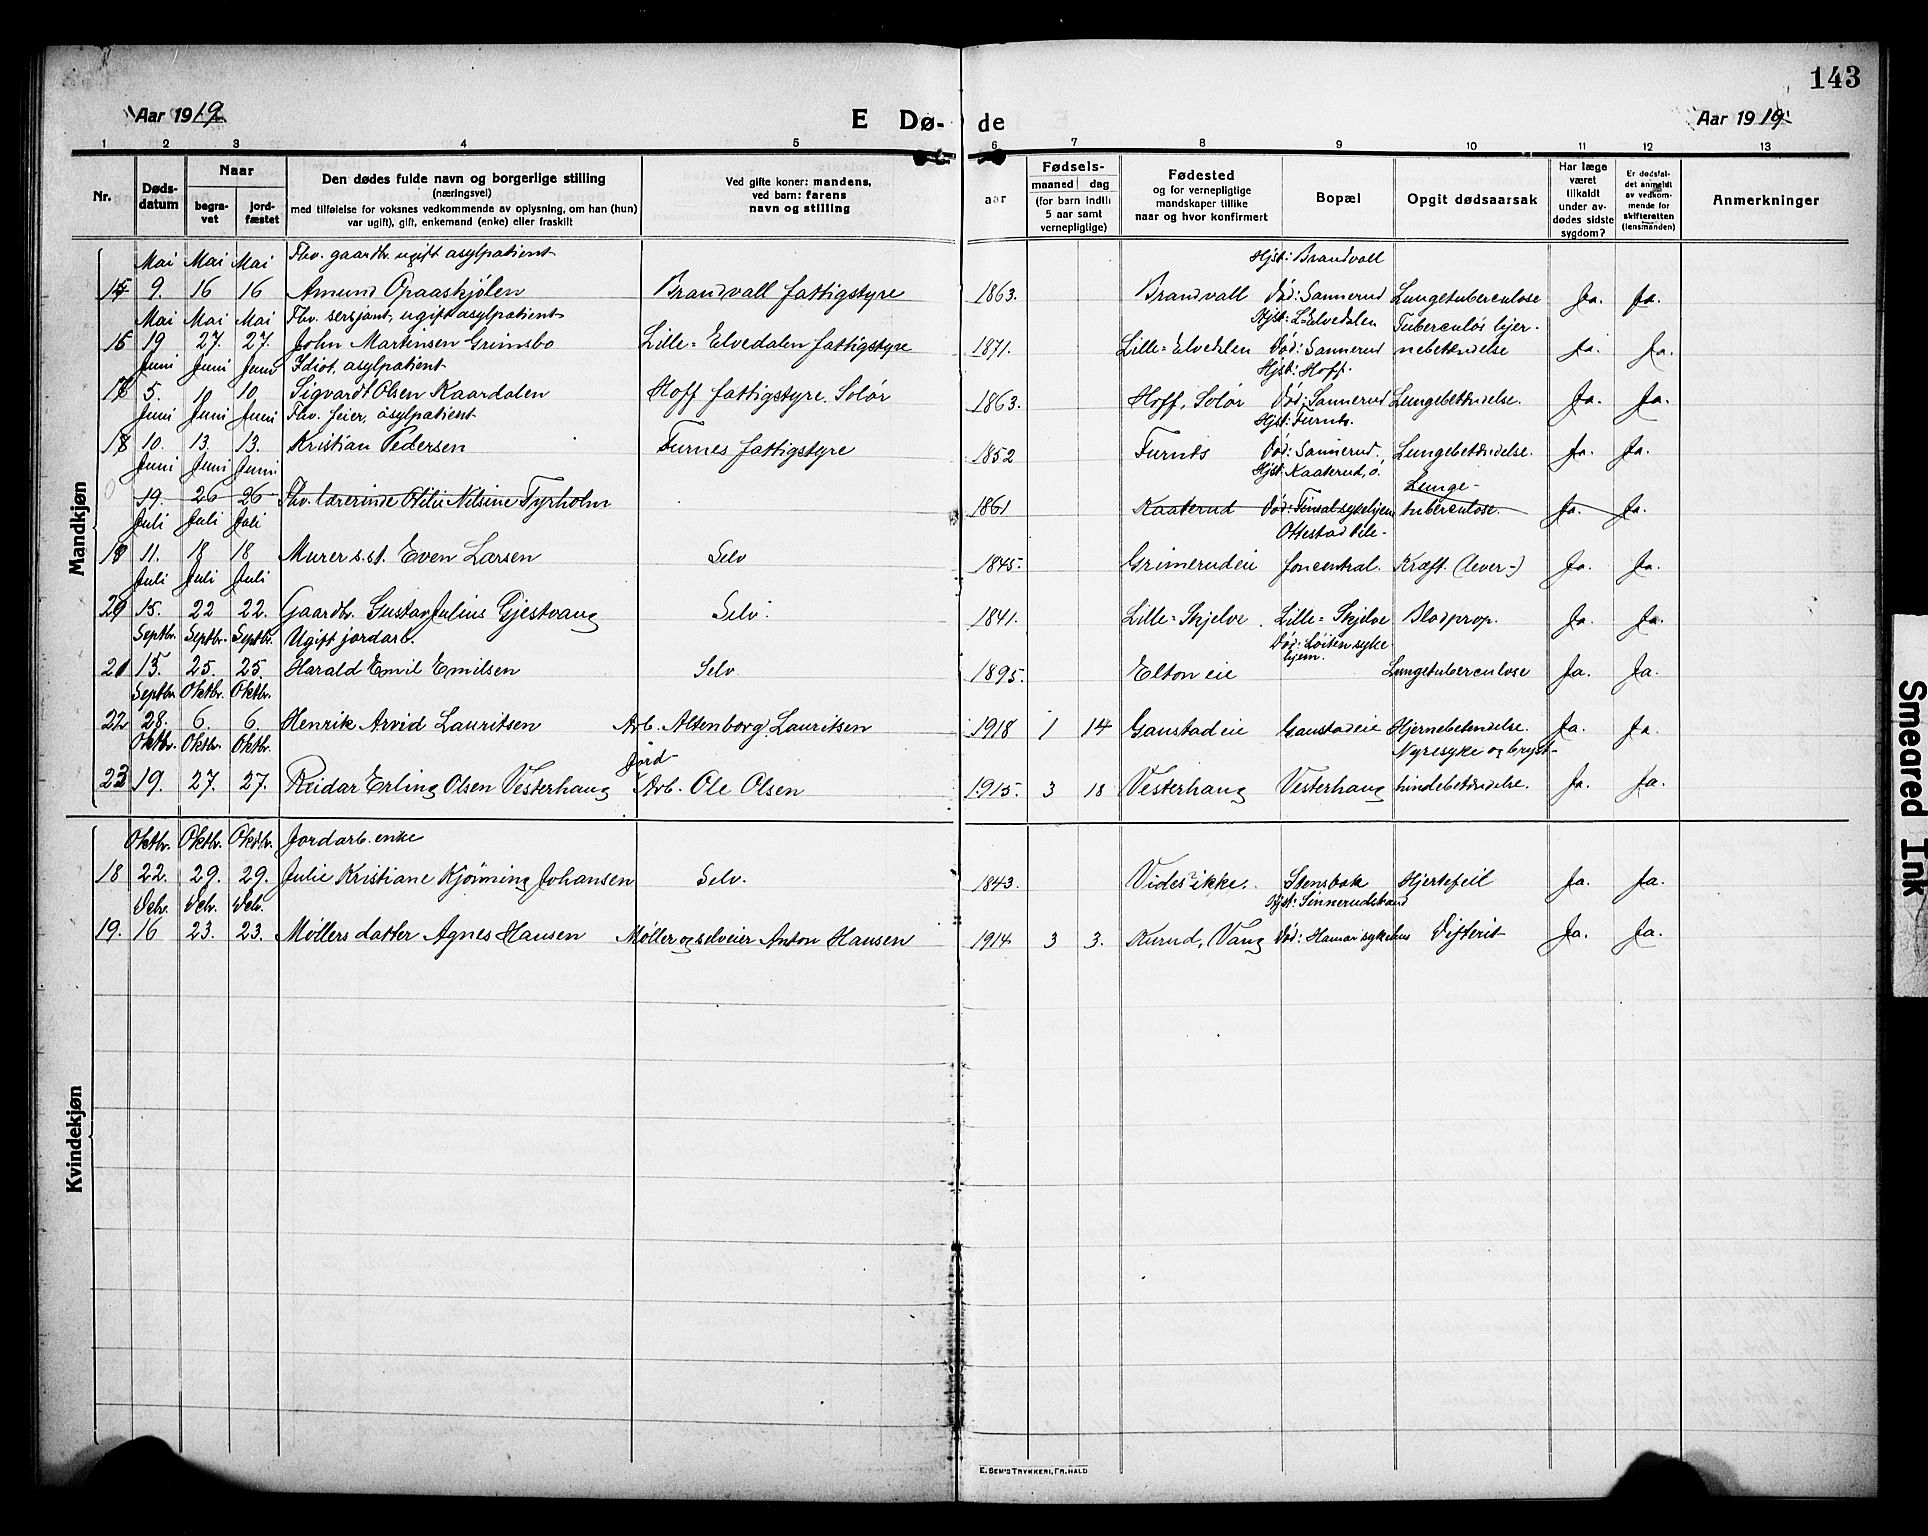 143
Aar 1919
E Dø-de
Aar 1919
1 2 3 4 5 6 7 8 9 10 11 12 13
Nr.
Døds-datum
Naar
begra-vet
jord-fæstet
Den dødes fulde navn og borgerlige stilling
(næringsvei)
med tilføielse for voksnes vedkommende av oplysning, om han (hun)
var ugift), gift, enkemand (enke) eller fraskilt
Ved gifte koner: mandens,
ved barn: farens
navn og stilling
aar
Fødsels-
maaned dag
(for barn indtil
5 aar samt
vernepligtige)
Fødested
og for vernepligtige
mandskaper tillike
naar og hvor konfirmert
Bopæl
Opgit dødsaarsak
Har læge
været
tilkaldt
under av-
dødes sidste
sygdom?
Er dødsfal-
det anmeldt
av vedkom-
mende for
skifteretten
(lensmanden)
Anmerkninger
Mandkjøn
Mai Mai Mai Fhv. gaardbr. ugift asylpatient Hjst: Brandvall
15 9. 16 16 Amund Opaaskjølen Brandvall fattigstyre 1863. Brandvall Død: Sannerud Lungetuberculose Ja. Ja.
Mai Mai Mai Fhv. sersjant, ugift asylpatient Hjst: L-Elvedalen Tuberculøs hjer-
19 27. 27. John Martinsen Grimsbo Lille-Elvedalen fattigstyre 1871. Lille-Elvedalen Død: Sannerud nebetændelse Ja. Ja.
Juni Juni Juni Idiot, asylpatient Hjst: Hoff.
5. 10. Sigvardt Olsen Kaardalen Hoff fattigstyre. Solør 1863. Hoff, Solør Død: Sannerud Lungebetændelse. Ja. Ja.
Juni Juni Juni Fhv. feier, asylpatient Hjst: Furnes.
18 10. 13. 13. Kristian Pedersen Furnes fattigstyre 1852 Furnes Død: Sannerud. Lungebetændelse. Ja. Ja.
Juni Juni Juni Hjst: Kaaterud, ö. Lunge-
19. 26 26 Fhv. lærerinde Otilie Nilsine Tyrholm 1861 Kaaterud tuberculose. Ja. Ja.
Juli Juli Juli Ottestad tele-
19 11. 18 18 Murer s.st. Even Larsen Selv 1845. Grimerudeie foncentral. Kræft. (lever-) Ja. Ja.
Juli Juli Juli
20 15. 22 22. Gaardbr. Gustav Julius Gjestvang Selv. 1841. Lille-Skjelve. Lille-Skjelve Blodprop. Ja. Ja.
Septbr. Septbr. Septbr. Ugift jordarb. Død: Løiten syke-
hjem.
21 15. 25. 25. Harald Emil Emilsen Selv 1895. Elton eie Lungetuberculose Ja. Ja.
Septbr. Oktbr. Oktbr.
22 28. 6. 6. Henrik Arvid Lauritsen Arb. Altenborg Lauritsen 1918 1 14 Gaustadeie Gaustadeie Hjernebetændelse. Ja. Ja.
Oktbr. Oktbr. Oktbr. Jord- Nyresyke og bryst-
23 19. 27. 27. Reidar Erling Olsen Vesterhaug Arb. Ole Olsen 1915. 3 18 Vesterhaug Vesterhaug hindebetændelse. Ja. Ja.
Kvindekjøn
Oktbr. Oktbr. Oktbr. Jordarb. enke
18 22. 29. 29. Julie Kristiane Kjønning Johansen Selv. 1843. Vides ikke. Stensbak Hjertefeil Ja. Ja.
Debr. Debr. Debr. Hjst: Sinnerudstrand
19. 16 23. 23. Møllers datter Agnes Hansen Møller og selveier Anton Hansen 1914 3 3. Kurud, Vang Død: Hamar sykehus Difterit Ja. Ja.
E. SEM'S TRYKKERI, FR.HALD
Smeared Ink